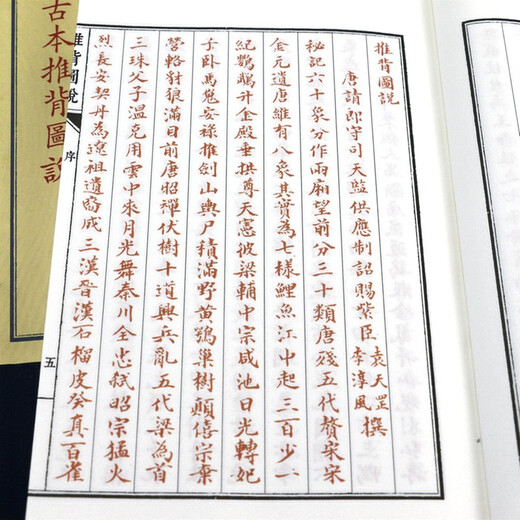 推背圖說
唐請即守司天監供應制詔賜紫臣 袁天罡 李淳風 撰
秘記六十象分作兩廂望前分三十類唐殘五代贅宋宋
金元遺唐維有八象其實為七樣鯉魚江中起三百少一
紀鸚鵡升金殿垂拱尊天憲彼梁輔中宗咸池日光轉妃
子臥馬嵬安祿推劍山輿尸積滿野黃鶚巢樹顛僖宗棄
營輅豺狼滿目前唐昭禪伏樹十道興兵亂五代梁為首
三珠父子溫克用雲中來月光舞秦川全忠弒昭宗猛火
烈長安契丹為遼祖遺裔成三漢晉漢石榴皮發真百雀
推背圖說
序
五
古本推背圖說